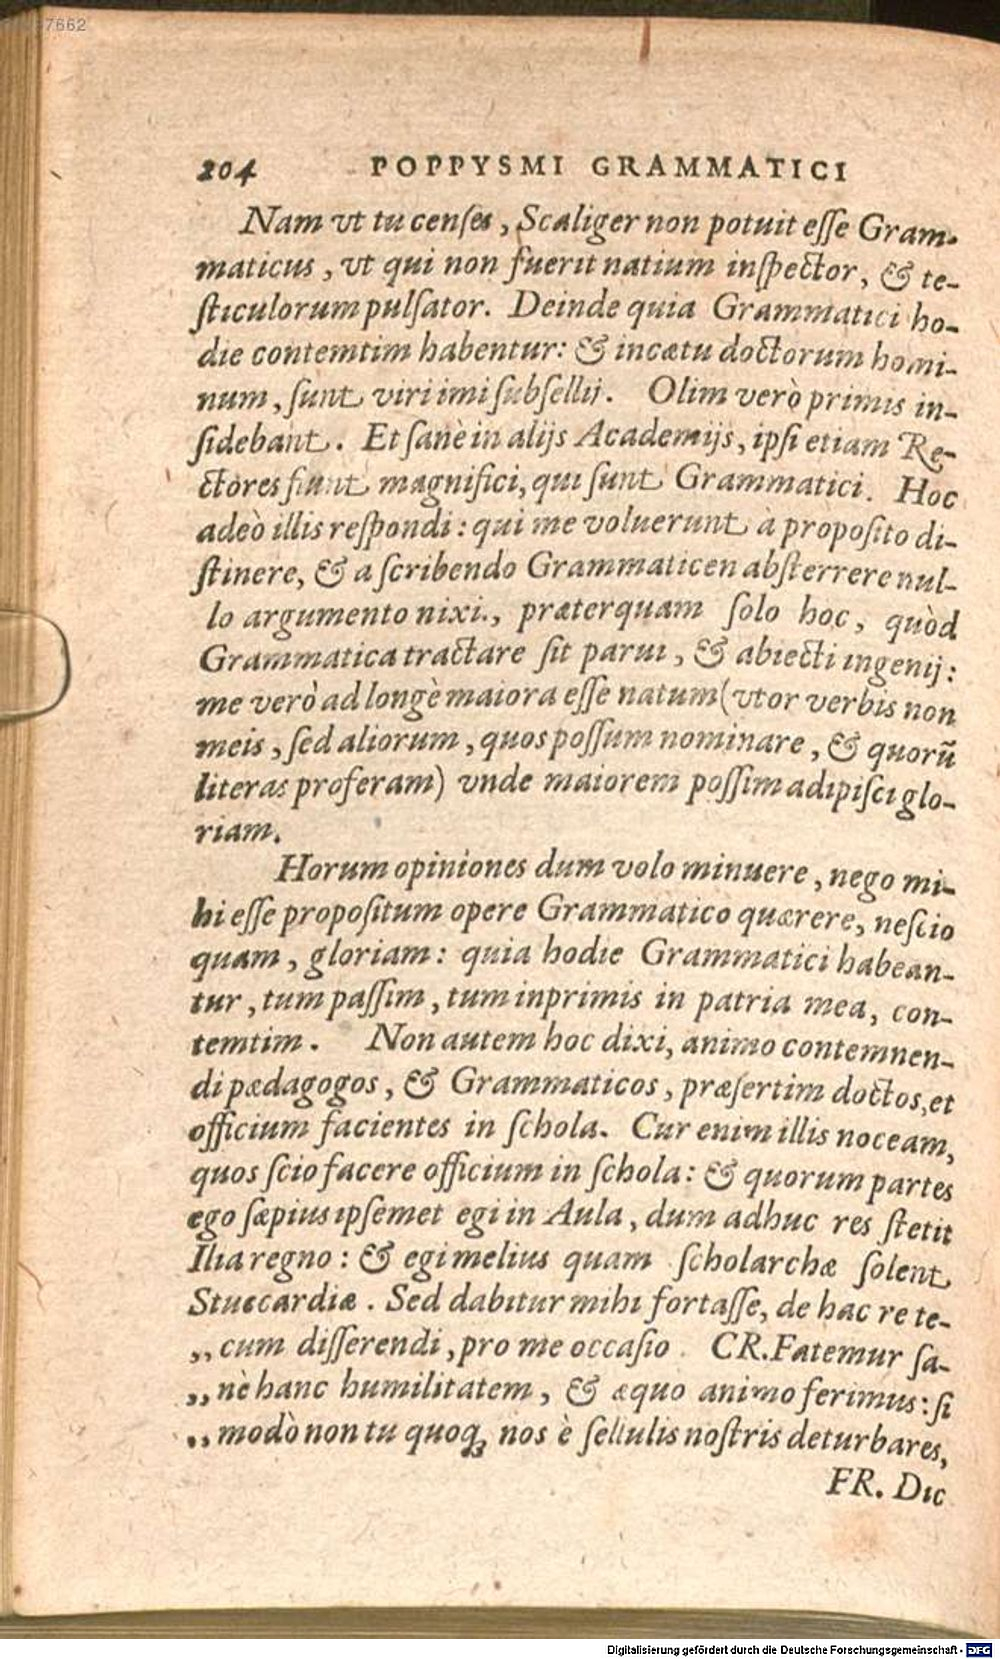 7662
204 POPPYSMI GRAMMATICI
Nam vt tu censes, Scaliger non potuit esse Gram-
maticus, vt qui non fuerit natium inspector, & te-
sticulorum pulsator. Deinde quia Grammatici ho-
die contemtim habentur: & in cœtu doctorum homi-
num, sunt viri imi subsellij. Olim verò primis in-
sidebant. Et sanè in alijs Academijs, ipsi etiam Re-
ctores fiunt magnifici, qui sunt Grammatici. Hoc
adeò illis respondi: qui me voluerunt à proposito di-
stinere, & a scribendo Grammaticen absterrere nul-
lo argumento nixi., præterquam solo hoc, quòd
Grammatica tractare sit parui, & abiecti ingenij:
me verò ad longè maiora esse natum (vtor verbis non
meis, sed aliorum, quos possum nominare, & quorũ
literas proferam) vnde maiorem possim adipisci glo-
riam.
Horum opiniones dum volo minuere, nego mi-
hi esse propositum opere Grammatico quærere, nescio
quam, gloriam: quia hodie Grammatici habean-
tur, tum passim, tum inprimis in patria mea, con-
temtim. Non autem hoc dixi, animo contemnen-
di pædagogos, & Grammaticos, præsertim doctos, et
officium facientes in schola. Cur enim illis noceam,
quos scio facere officium in schola: & quorum partes
ego sæpius ipsemet egi in Aula, dum adhuc res stetit
Ilia regno: & egi melius quam scholarchæ solent
Stuccardiæ. Sed dabitur mihi fortasse, de hac re te-
„cum disserendi, pro me occasio. CR. Fatemur sa-
„nè hanc humilitatem, & æquo animo ferimus: si
„modò non tu quoq; nos è sellulis nostris deturbares,
FR. Dic
Digitalisierung gefördert durch die Deutsche Forschungsgemeinschaft - DFG